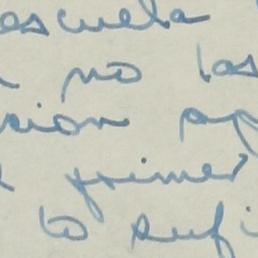 escuela
no las
sion ap
primer
to sufi